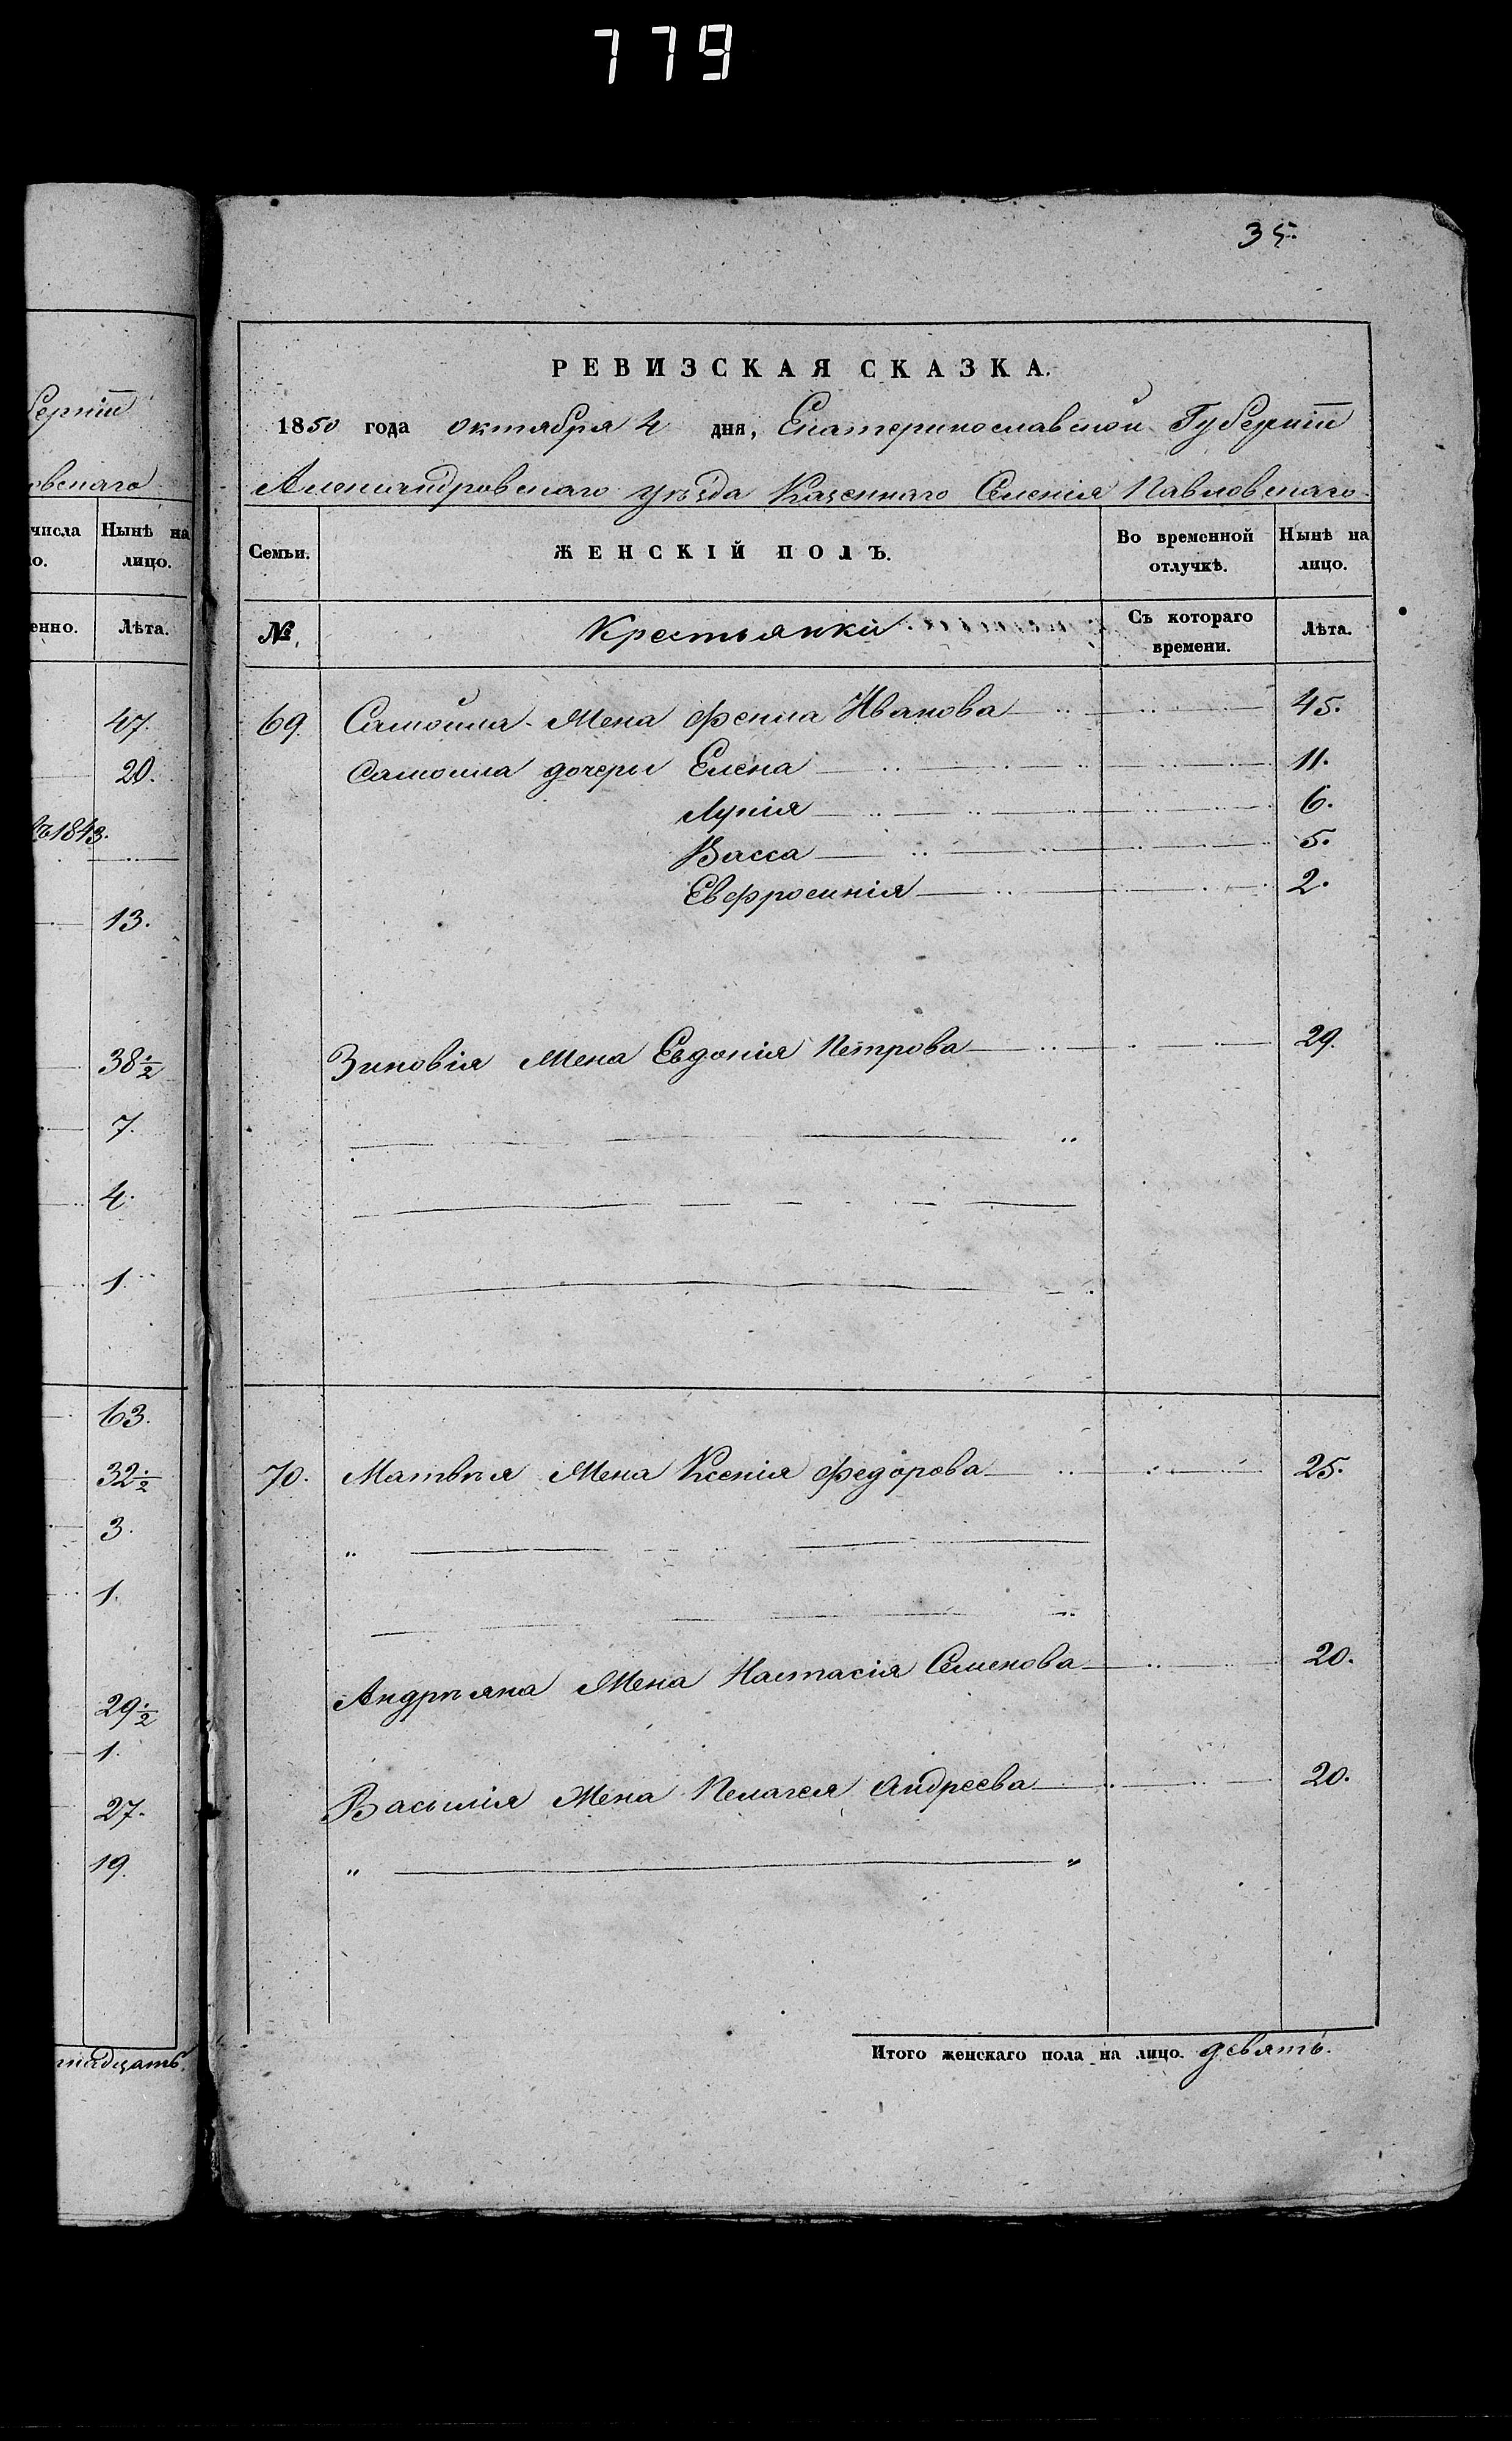 779
35.
РЕВИЗСКАЯ СКАЗКА.
1850 года октября 4 дня, Екатеринославской Губерніи
Александровскаго уѣзда Казеннаго Селенія Павловскаго
Семьи.
ЖЕНСКІЙ ПОЛЪ.
Во временной отлучкѣ.
Нынѣ на лицо.
№
Крестьянки
Съ котораго времени.
Лѣта.
69. Самойла Жена Фекла Иванова 45.
Самойла дочери Елена 11.
Лукія 6.
Васса 5.
Евфросинія 2.
Зиновія Жена Евдокія Петрова 29.
70. Матвѣя Жена Ксенія Федорова 25.
Андрѣяна Жена Настасія Семенова 20.
Василія Жена Пелагея Андреева 20.
Итого женскаго пола на лицо. девять.
числа
Нынѣ на
лицо.
Лѣта.
47.
20.
1843.
13.
38 1/2
7.
4.
1.
63.
32 1/2
3.
1.
29 1/2
1.
27.
19.